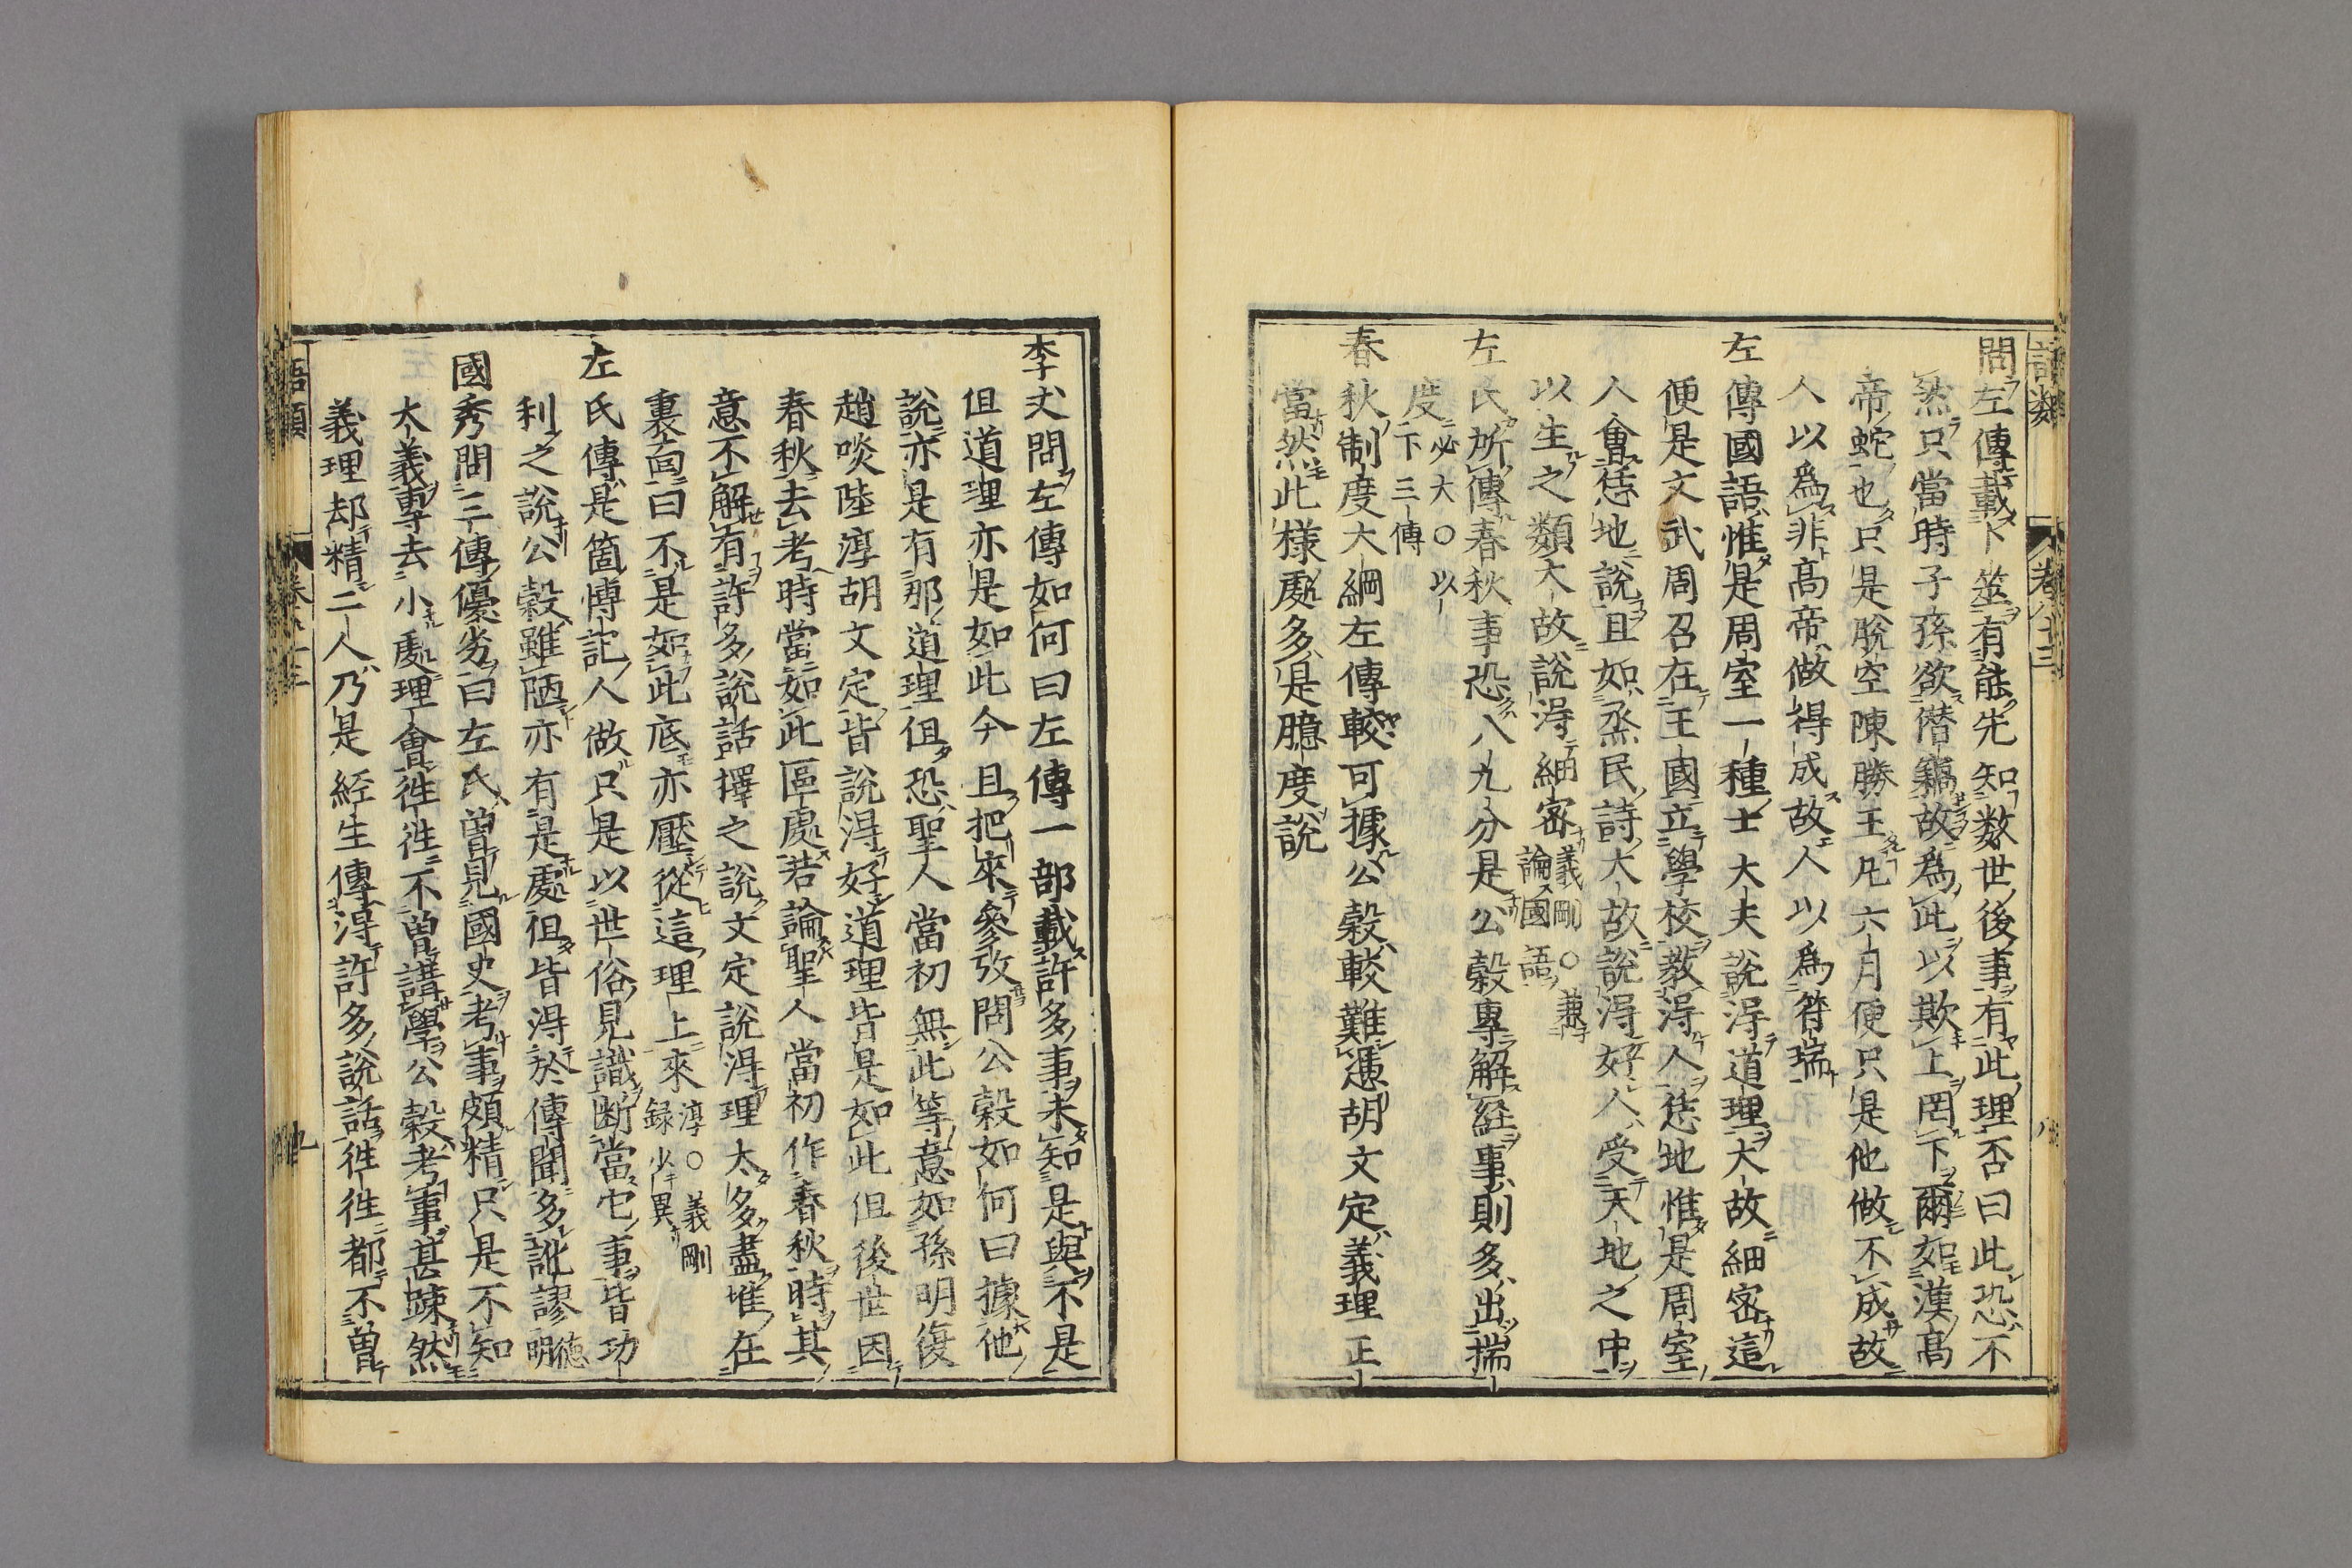 語類 卷八十三 八
問左傳載卜筮有能先知数世後事有此理否曰此恐不
然只當時子孫欲僣竊故爲此以欺上罔下爾如漢高
帝蛇也只是脫空陳勝王凡六月便只是他做不成故
人以爲非高帝做得成故人以爲符瑞
左傳國語惟是周室一種士大夫說得道理大故細密這
便是文武周召在王國立學校教得人恁地惟是周室
人會恁地說且如烝民詩大故說得好人受天地之中
以生之類大故說得細密義剛〇兼論國語
左氏所傳春秋事恐八九分是公穀專解経事則多出揣
度必大〇以下三傳
春秋制度大綱左傳較可據公穀較難憑胡文定義理正
當然此樣處多是臆度說
李丈問左傳如何曰左傳一部載許多事未知是與不是
但道理亦是如此今且把來參攷問公穀如何曰據他
說亦是有那道理但恐聖人當初無此等意如孫明復
趙啖陸淳胡文定皆說得好道理皆是如此但後世因
春秋去考時當如此區處若論聖人當初作春秋時其
意不解有許多說話擇之說文定說得理太多盡堆在
裏面曰不是如此底亦壓從這理上來淳〇義剛録少異
左氏傳是箇博記人做只是以世俗見識断當它事皆功
利之說公穀雖陋亦有是處但皆得於傳聞多訛謬德明
國秀問三傳優劣曰左氏曽見國史考事頗精只是不知
大義專去小處理會徃徃不曽講學公穀考事甚踈然
義理却精二人乃是経生傳得許多說話徃徃都不曽
語類 卷八十三 九